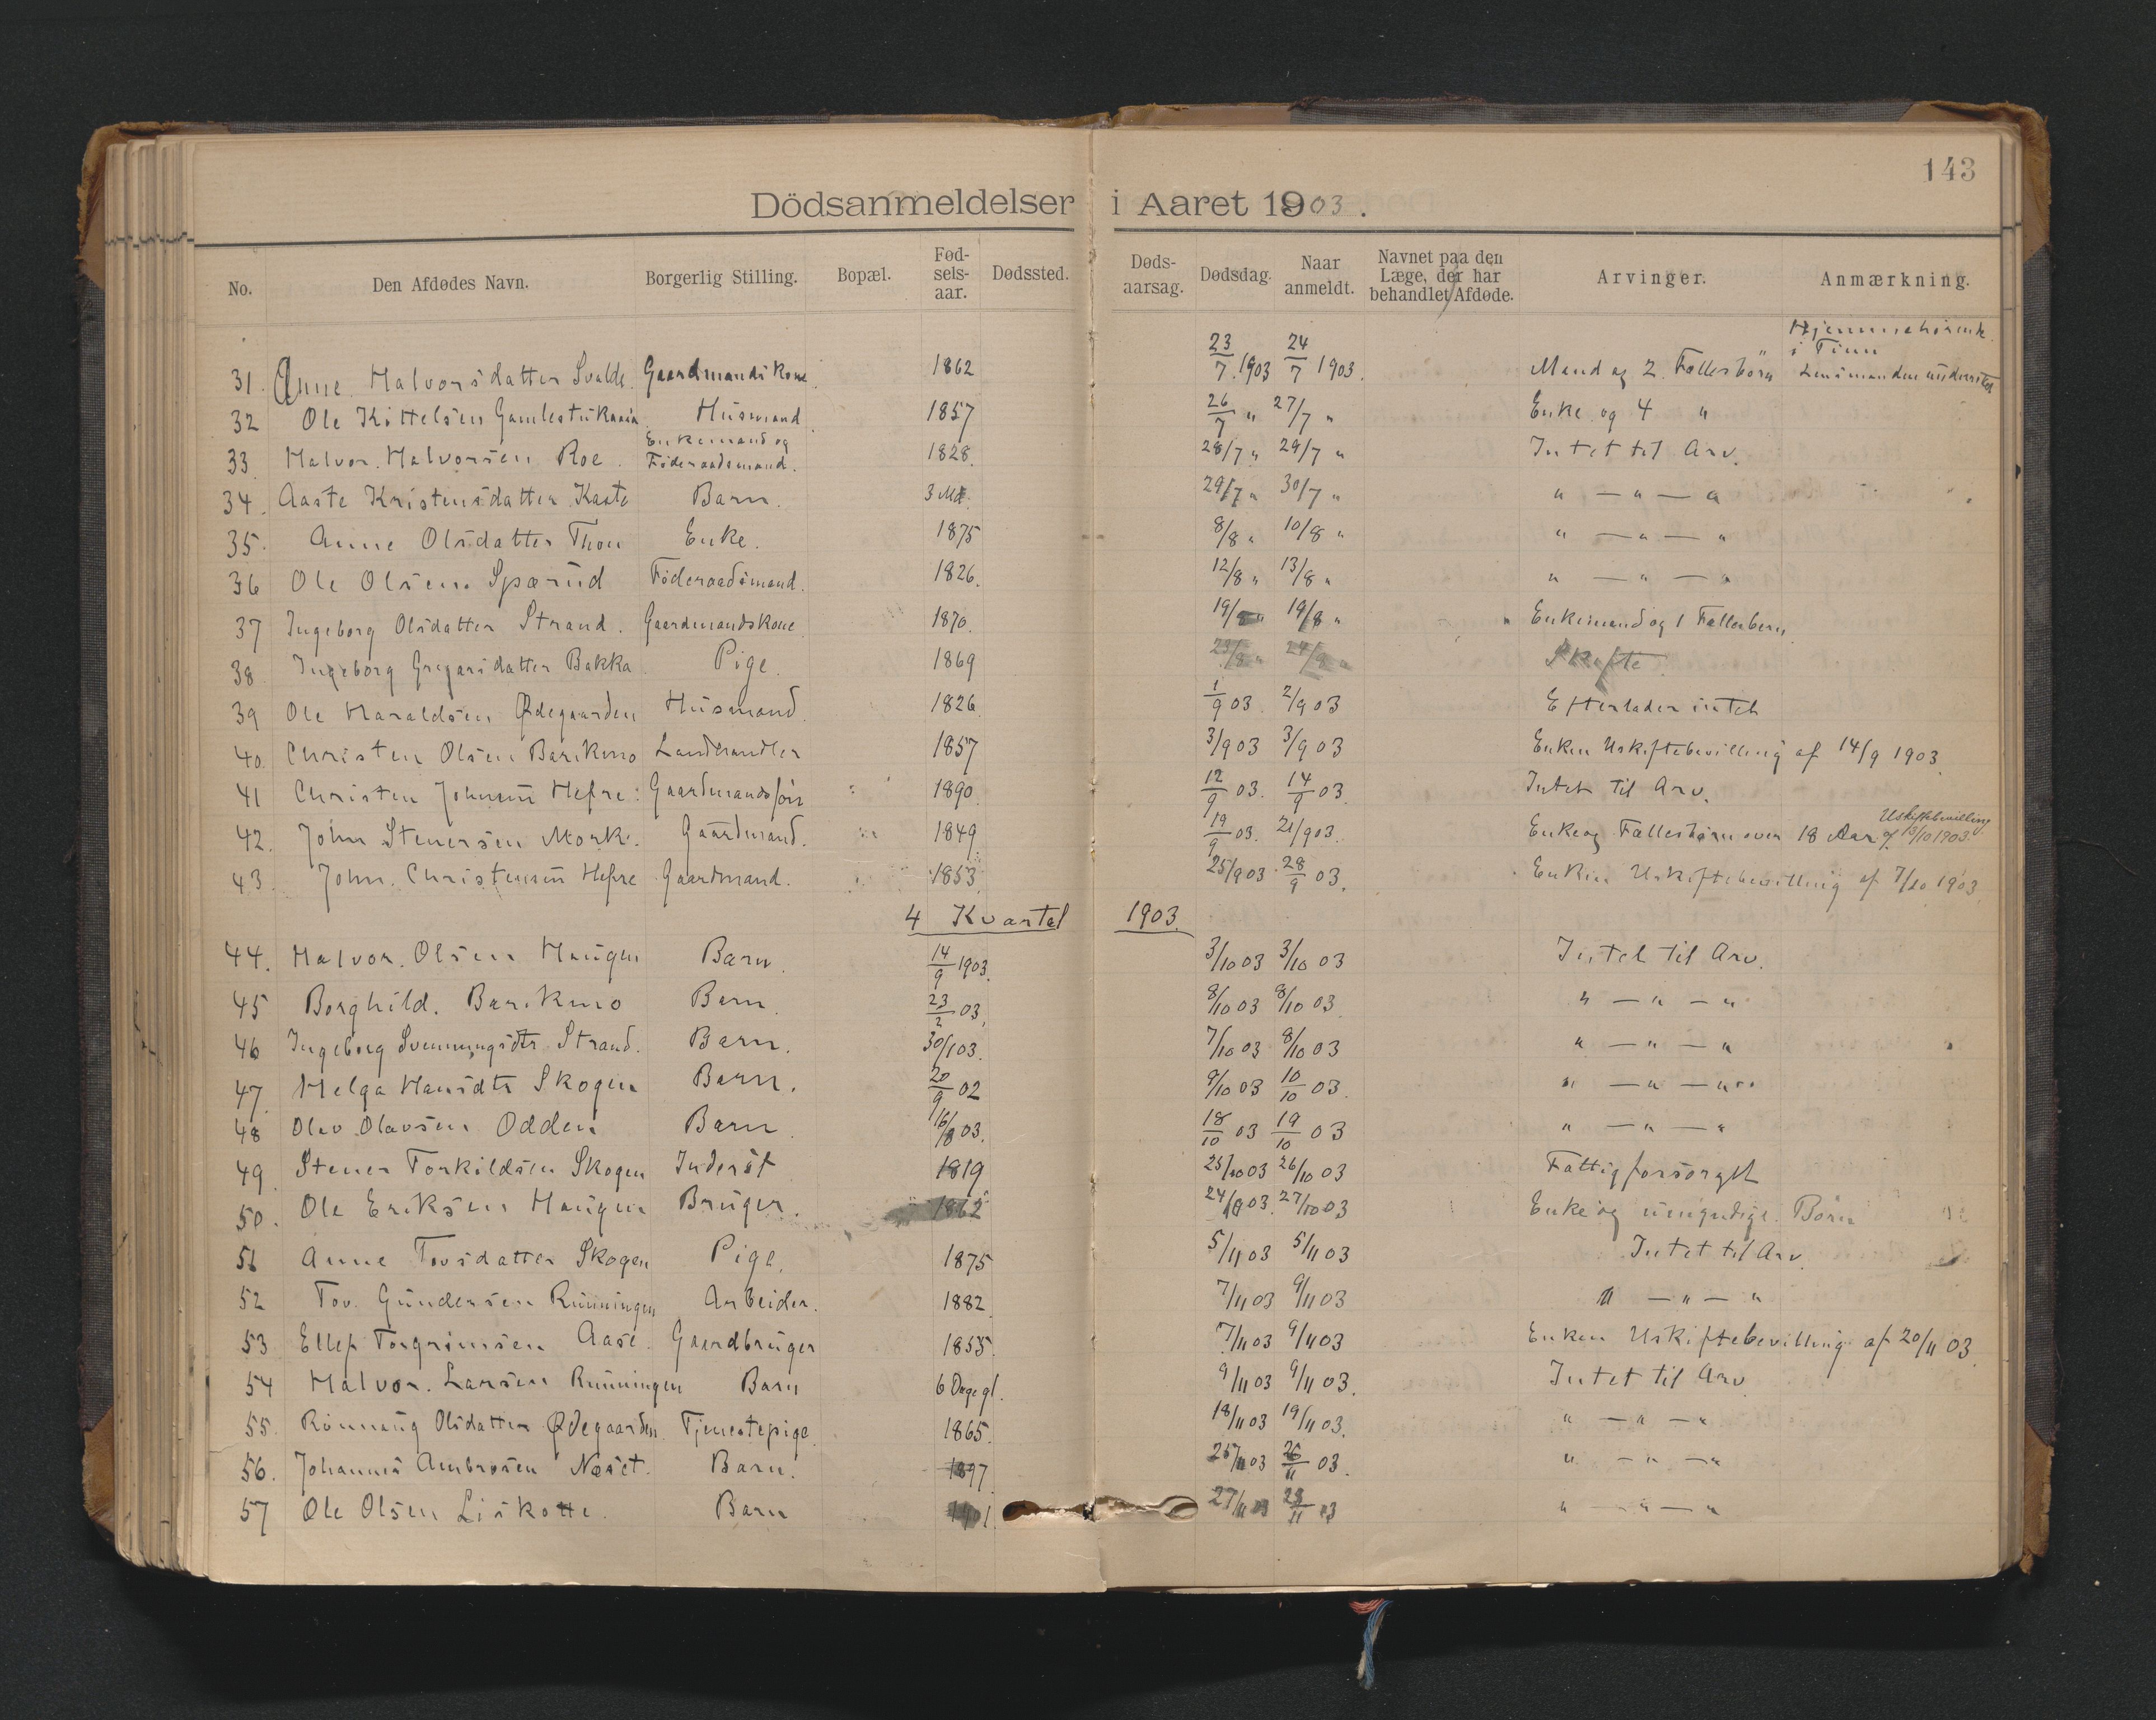 143
Dödsanmeldelser i Aaret 1903.
No. Den Afdødes Navn. Borgerlig Stilling. Bopæl. Fød-sels-aar. Dødssted. Døds-aarsag. Dødsdag. Naar anmeldt. Navnet paa den Læge, der har behandlet Afdøde. Arvinger. Anmærkning.
31. Anne Halvorsdatter Svalde. Gaardmandskone. 1862 23/7 1903 24/7 1903. Mand og 2 Fællesbörn Hjemmehørende i Tinn Lensmanden underrettet
32 Ole Kittelsen Husmand. 1857 26/7 " 27/7 " Enke og 4 "
33. Halvor Halvorsen Roe. Enkemand og Föderaadsmand. 1828. 28/7 " 29/7 " Intet til Arv.
34. Aaste Kristensdatter Kaste Barn. 3 Md. 29/7 " 30/7 " " — " — "
35. Anne Olsdatter Thon Enke. 1875 8/8 " 10/8 " " — " — "
36 Ole Olsen Spærud Föderaadsmand. 1826. 12/8 " 13/8 " " — " — "
37 Ingeborg Olsdatter Strand. Gaardmandskone 1870. 19/8 " 19/8 " Enkemand og 1 Fællesbarn
38 Ingeborg Gregarsdatter Bakka Pige. 1869 23/8 " 24/8 " Skifte
39 Ole Haraldsen Ødegaarden Husmand. 1826 1/9 03. 2/9 03 Efterlader intet
40. Christen Olsen Barikmo Landhandler 1857 3/9 03 3/9 03 Enken Uskiftebevilling af 14/9 1903.
41 Christen Johnsen Hefre: Gaardmandssön 1890. 12/9 03. 14/9 03. Intet til Arv.
42. John Stenersen Mork. Gaardmand. 1849. 19/9 03. 21/9 03. Enke og Fællesbörn over 18 Aar. Uskiftebevilling af 13/10 1903.
43. John Christensen Hefre Gaardmand. 1853. 25/9 03 28/9 03. Enken Uskiftebevilling af 7/10 1903.
4 Kvartal 1903.
44. Halvor Olsen Haugen Barn. 14/9 1903. 3/10 03 3/10 03 Intet til Arv.
45 Borghild Barikmo Barn. 23/2 03. 8/10 03 8/10 03. " — " — "
46 Ingeborg Svenningsdtr Strand. Barn. 30/1 03. 7/10 03 8/10 03 " — " — "
47. Helga Hansdtr Skogen Barn. 20/9 02 9/10 03 10/10 03. " — " — "
48 Olav Olavsen Odden Barn. 16/8 03. 18/10 03 19/10 03 " — " — "
49. Stener Torkildsen Skogen Inderst 1819 25/10 03 26/10 03 Fattigforsörget
50. Ole Eriksen Haugen Bruger. 1862 24/10 03. 27/10 03 Enke og umyndige Börn
51 Anne Tovsdatter Skogen Pige. 1875 5/11 03 5/11 03 Intet til Arv.
52 Tov Gundersen Runningen Arbeider. 1882 7/11 03 9/11 03 " — " — "
53 Ellef Torgrimsen Aase. Gaardbruger 1855. 7/11 03 9/11 03 Enken Uskiftebevilling af 20/11 03.
54 Halvor Larsen Runningen Barn 6 Dage gl. 9/11 03 9/11 03. Intet til Arv
55. Rönnaug Olsdatter Ødegaarden. Tjenestepige. 1865. 18/11 03 19/11 03. " — " — "
56. Johannes Ambrosen Næset. Barn. 1897 25/11 03 26/11 03. " — " — "
57 Ole Olsen Liskotte. Barn 1901. 27/11 03 28/11 03 " — " — "